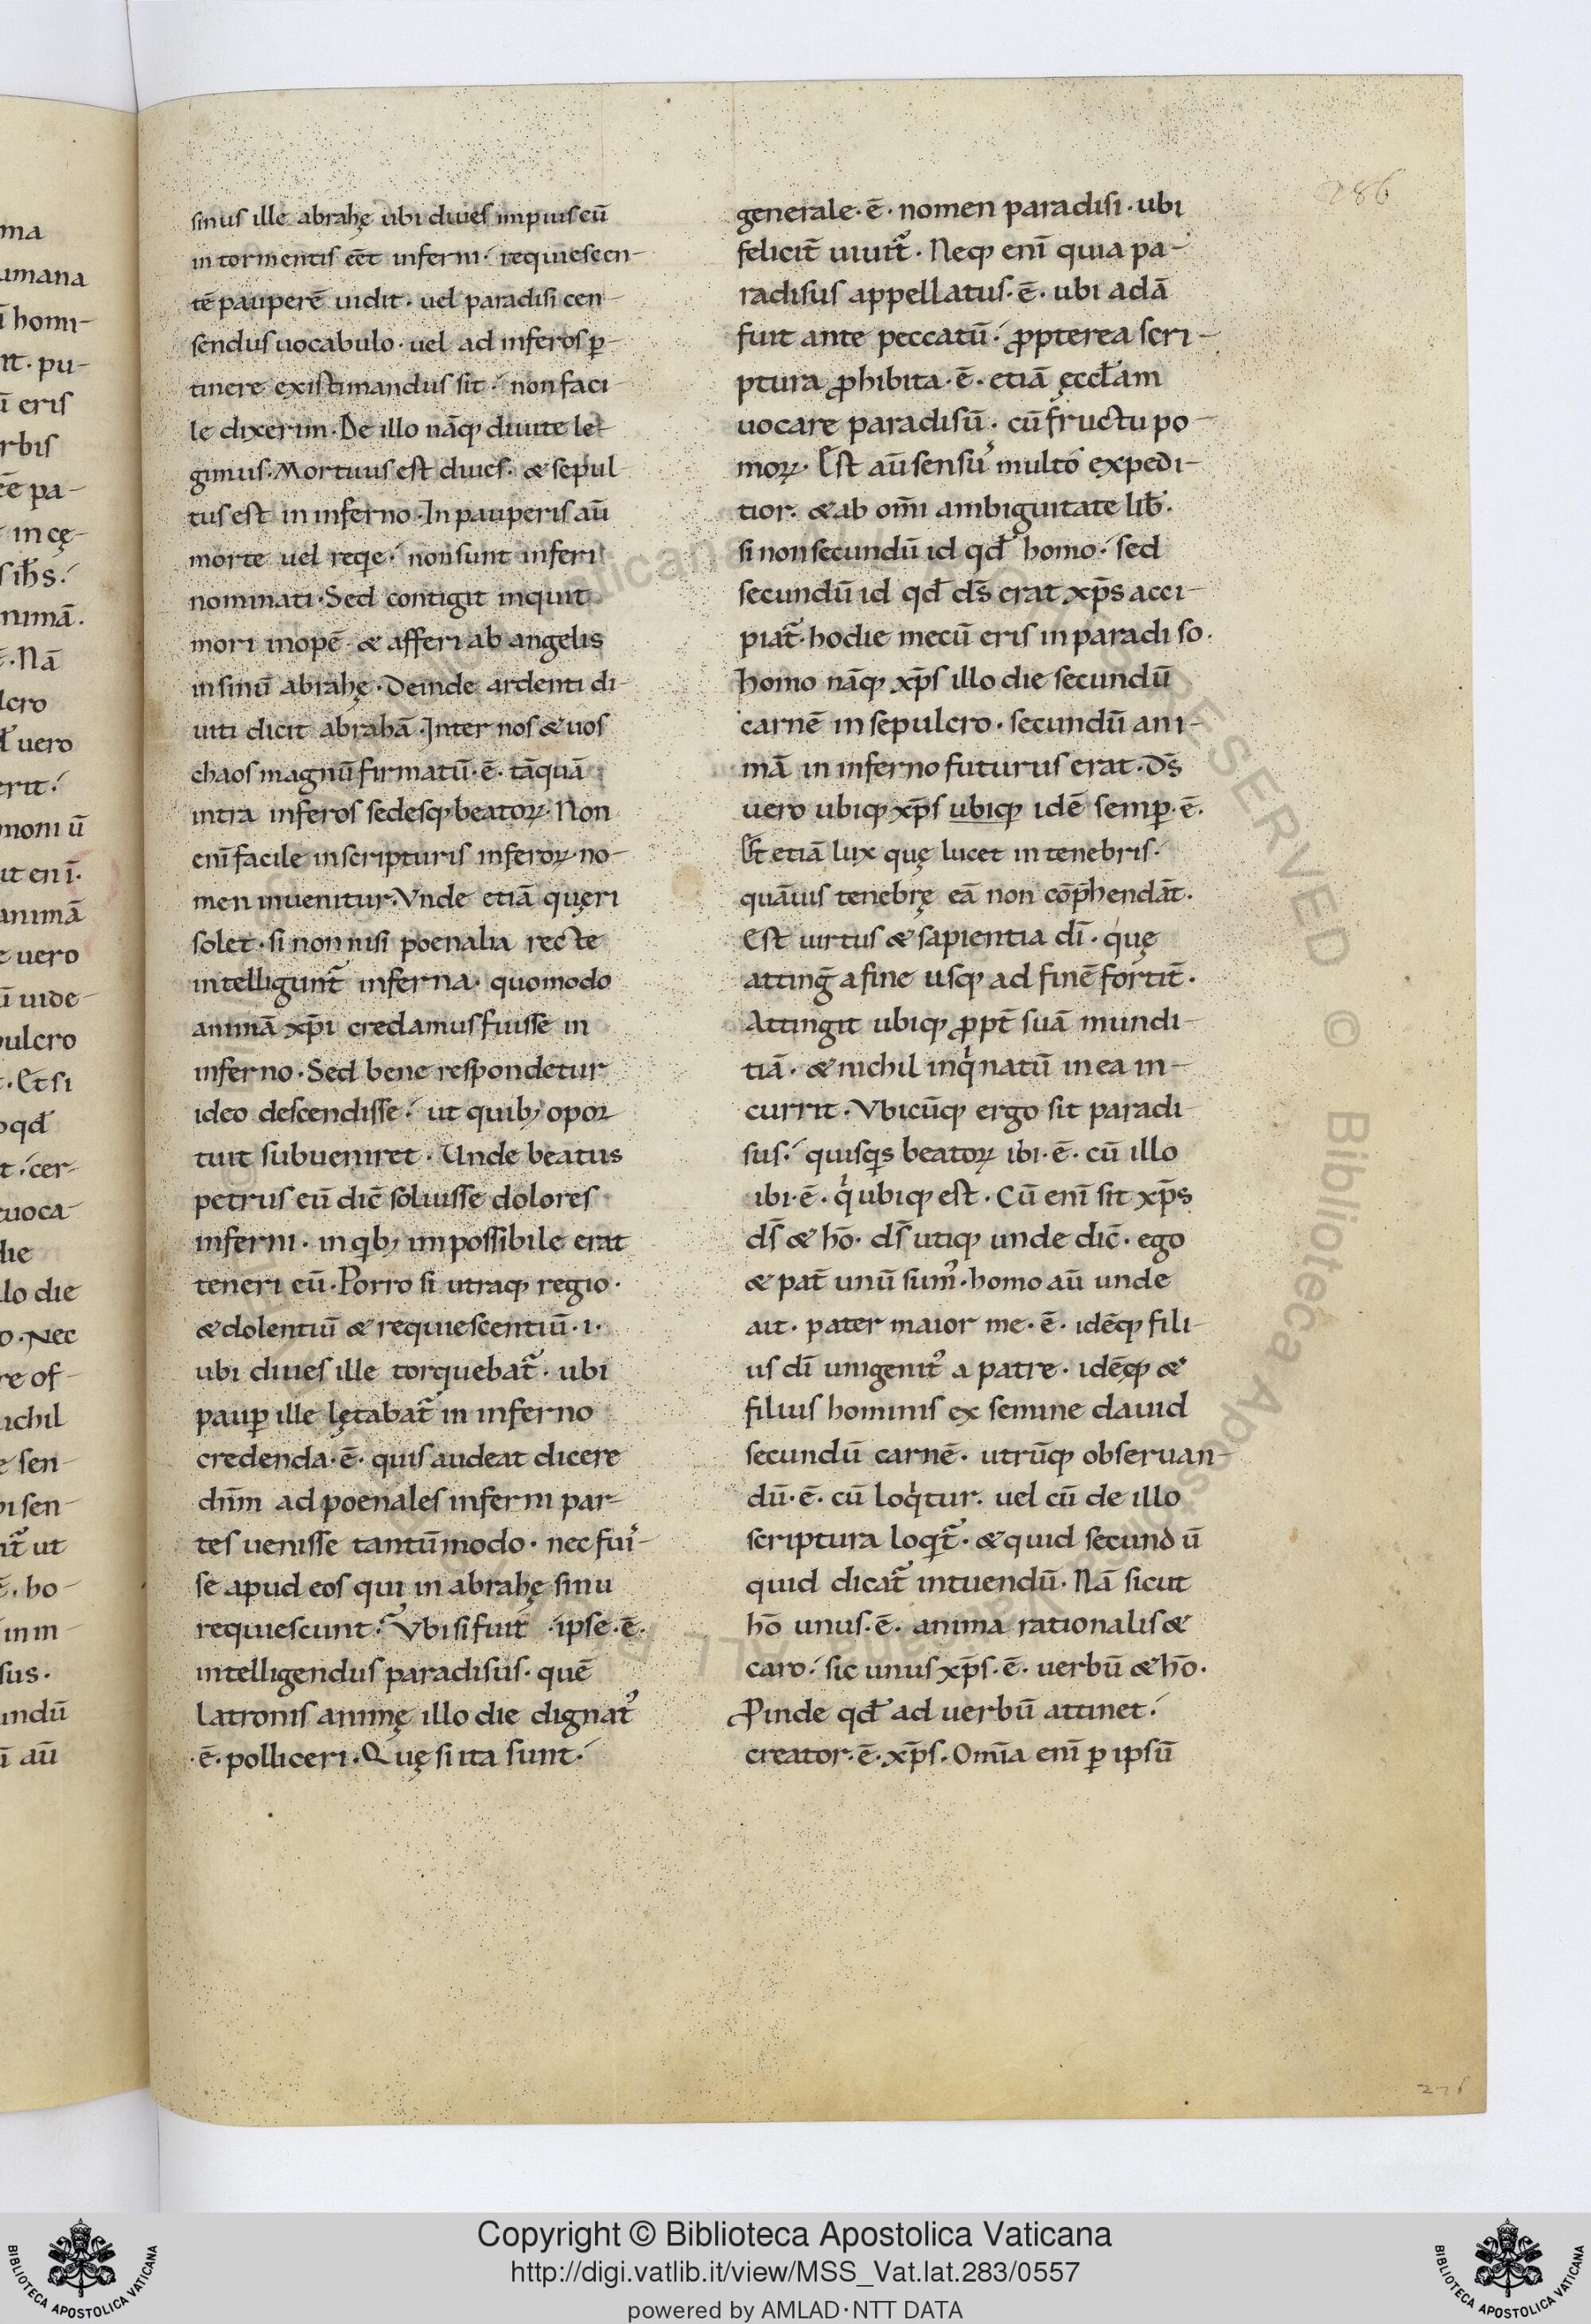 ma
umana
ī homi-
nt. pu-
ī eris
rbis
ēē pa-
in cę-
s ih̄s.
nimā.
ē. Nā
lcro
đ uero
erit.
moni ū
ut enī.
animā
e uero
ū uide-
pulcro
. Et si
oqđ
t. cer-
uoca-
die
llo die
o. Nec
re of-
ichil
e sen-
bi sen-
it̄ ut
ē. ho-
in in-
sus.
undū
ī aū
sinus ille abrahę ubi diues impius cū
in tormentis eēt inferni. requiescen-
tē pauperē uidit. uel paradisi cen-
sendus uocabulo. uel ad inferos ꝑ-
tinere existimandus sit. non faci-
le dixerim. De illo nāq; diuite le-
gimus. Mortuus est diues. & sepul-
tus est in inferno. In pauperis aū
morte uel reqͥe. non sunt inferi
nominati. Sed contigit inquit
mori inopē & afferi ab angelis
in sinū abrahę. Deinde ardenti di-
uiti dicit abrahā. Inter nos & uos
chaos magnū firmatū. ē. tāquā
intra inferos sedesq; beatoꝝ. Non
enī facile in scripturis inferoꝝ no-
men inuenitur. Vnde etiā quęri
solet. si non nisi poenalia recte
intelligunt᷑ inferna. quomodo
animā xp̄i credamus fuisse in
inferno. Sed bene respondetur
ideo descendisse. ut quib; opor
tuit subueniret. Unde beatus
petrus eū dic̄ soluisse dolores
inferni. in qͥb; impossibile erat
teneri eū. Porro si utraq; regio.
& dolentiū & requiescentiū. i.
ubi diues ille torquebat᷑. ubi
pauꝑ ille lętabat᷑ in inferno
credenda. ē. quis audeat dicere
dn̄m ad poenales inferni par-
tes uenisse tantū modo. nec fuis-
se apud eos qui in abrahę sinu
requiescunt. Vbi si fuit ipse. ē.
intelligendus paradisus. quē
latronis animę illo die dignatꝰ
. ē. polliceri. Quę si ita sunt.
286
generale. ē. nomen paradisi. ubi
felicit̄ uiuit᷑. Neq; enī quia pa-
radisus appellatus. ē. ubi adā
fuit ante peccatū. ꝓpterea scri-
ptura ꝓhibita. ē. etiā ęccłam
uocare paradisū. cū fructu po-
moꝝ. Est aū sensuꝰ multo expedi-
tior. & ab om̄i ambiguitate lib̄.
si non secundū id qđ homo. sed
secundū id qđ ds̄ erat xp̄s acci-
piat᷑. hodie mecū eris in paradiso.
homo nāq; xp̄s illo die secundū
carnē in sepulcro. secundū ani-
mā in inferno futurus erat. Ds̄
uero ubiq; xp̄s ubiq; idē semꝑ. ē.
Et etiā lux quę lucet in tenebris.
quāuis tenebrę eā non cōp̄hendāt.
Est uirtus & sapientia dī. quę
atting̅ a fine usq; ad finē fortit̄.
Attingit ubiq; ꝓpt̄ suā mundi-
tiā. & nichil inqͥnatū in ea in-
currit. Vbicūq; ergo sit paradi-
sus. quisqͥs beatoꝝ ibi. ē. cū illo
ibi. ē. qͥ ubiq; est. Cū enī sit xp̄s
ds̄ & hō. ds̄ utiq; unde dic̄. ego
& pat̄ unū sumꝰ. homo aū unde
ait. pater maior me. ē. idēq; fili-
us dī unigenitꝰ a patre. idēq; &
filius hominis ex semine dauid
secundū carnē. utrūq; obseruan-
dū. ē. cū loqͥtur. uel cū de illo
scriptura loqͥt᷑. & quid secundū
quid dicat᷑ intuendū. Nā sicut
hō unus. ē. anima rationalis &
caro. sic unus xp̄s. ē. uerbū & hō.
Ꝓinde qđ ad uerbū attinet.
creator. ē. xp̄s. Om̄ia enī ꝑ ipsū
276
Copyright © Biblioteca Apostolica Vaticana
http://digi.vatlib.it/view/MSS_Vat.lat.283/0557
powered by AMLAD·NTT DATA
BIBLIOTECA APOSTOLICA VATICANA
BIBLIOTECA APOSTOLICA VATICANA